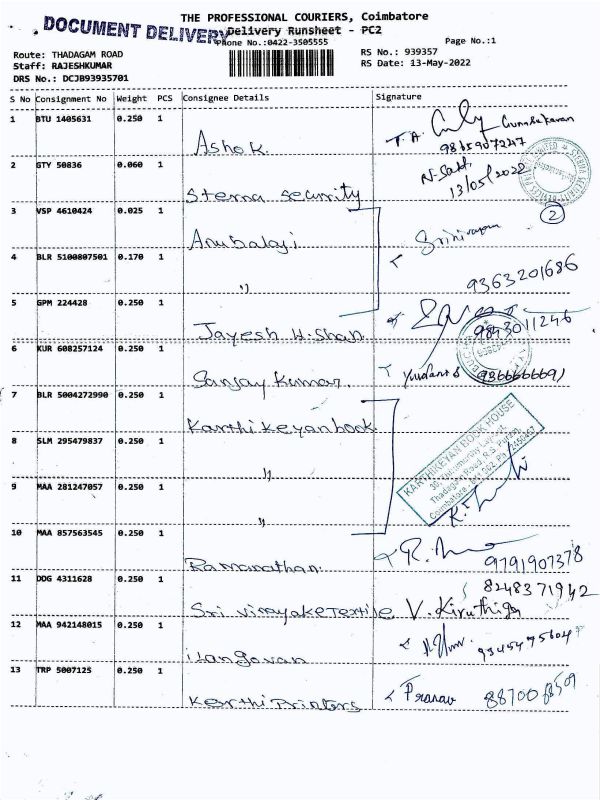 THE PROFESSIONAL COURIERS, Coimbatore
DOCUMENT DELIVERY
Delivery Runsheet - PC2
Phone No.:0422-3505555
Page No.:1
Route: THADAGAM ROAD
RS No.: 939357
Staff: RAJESHKUMAR
RS Date: 13-May-2022
DRS No.: DCJB93935701
S No Consignment No Weight PCS Consignee Details Signature
1 BTU 1405631 0.250 1 Ashok. T.A. Gunasekaran
9865907247
2 GTY 50836 0.060 1 Sterna security
13/05/2022
3 VSP 4610424 0.025 1 Anubalaji Srinivasan
2
4 BLR 5100807501 0.170 1 ,, 9363201686
5 GPM 224428 0.250 1 Jayesh H. Shan
9843011246
6 KUR 608257124 0.250 1 Sanjay Kumar.
7 BLR 5004272990 0.250 1 Karthikeyanbook
KARTHIKEYAN BOOK HOUSE
8 SLM 295479837 0.250 1 ,,
9 MAA 281247057 0.250 1 ,,
10 MAA 857563545 0.250 1 Ramanathan.
9791907378
11 DOG 4311628 0.250 1 Sri vinayaketextile V. Kiruthiga
8248371942
12 MAA 942148015 0.250 1 ilangovan
13 TRP 5007125 0.250 1 KerthiPrinters Pranav